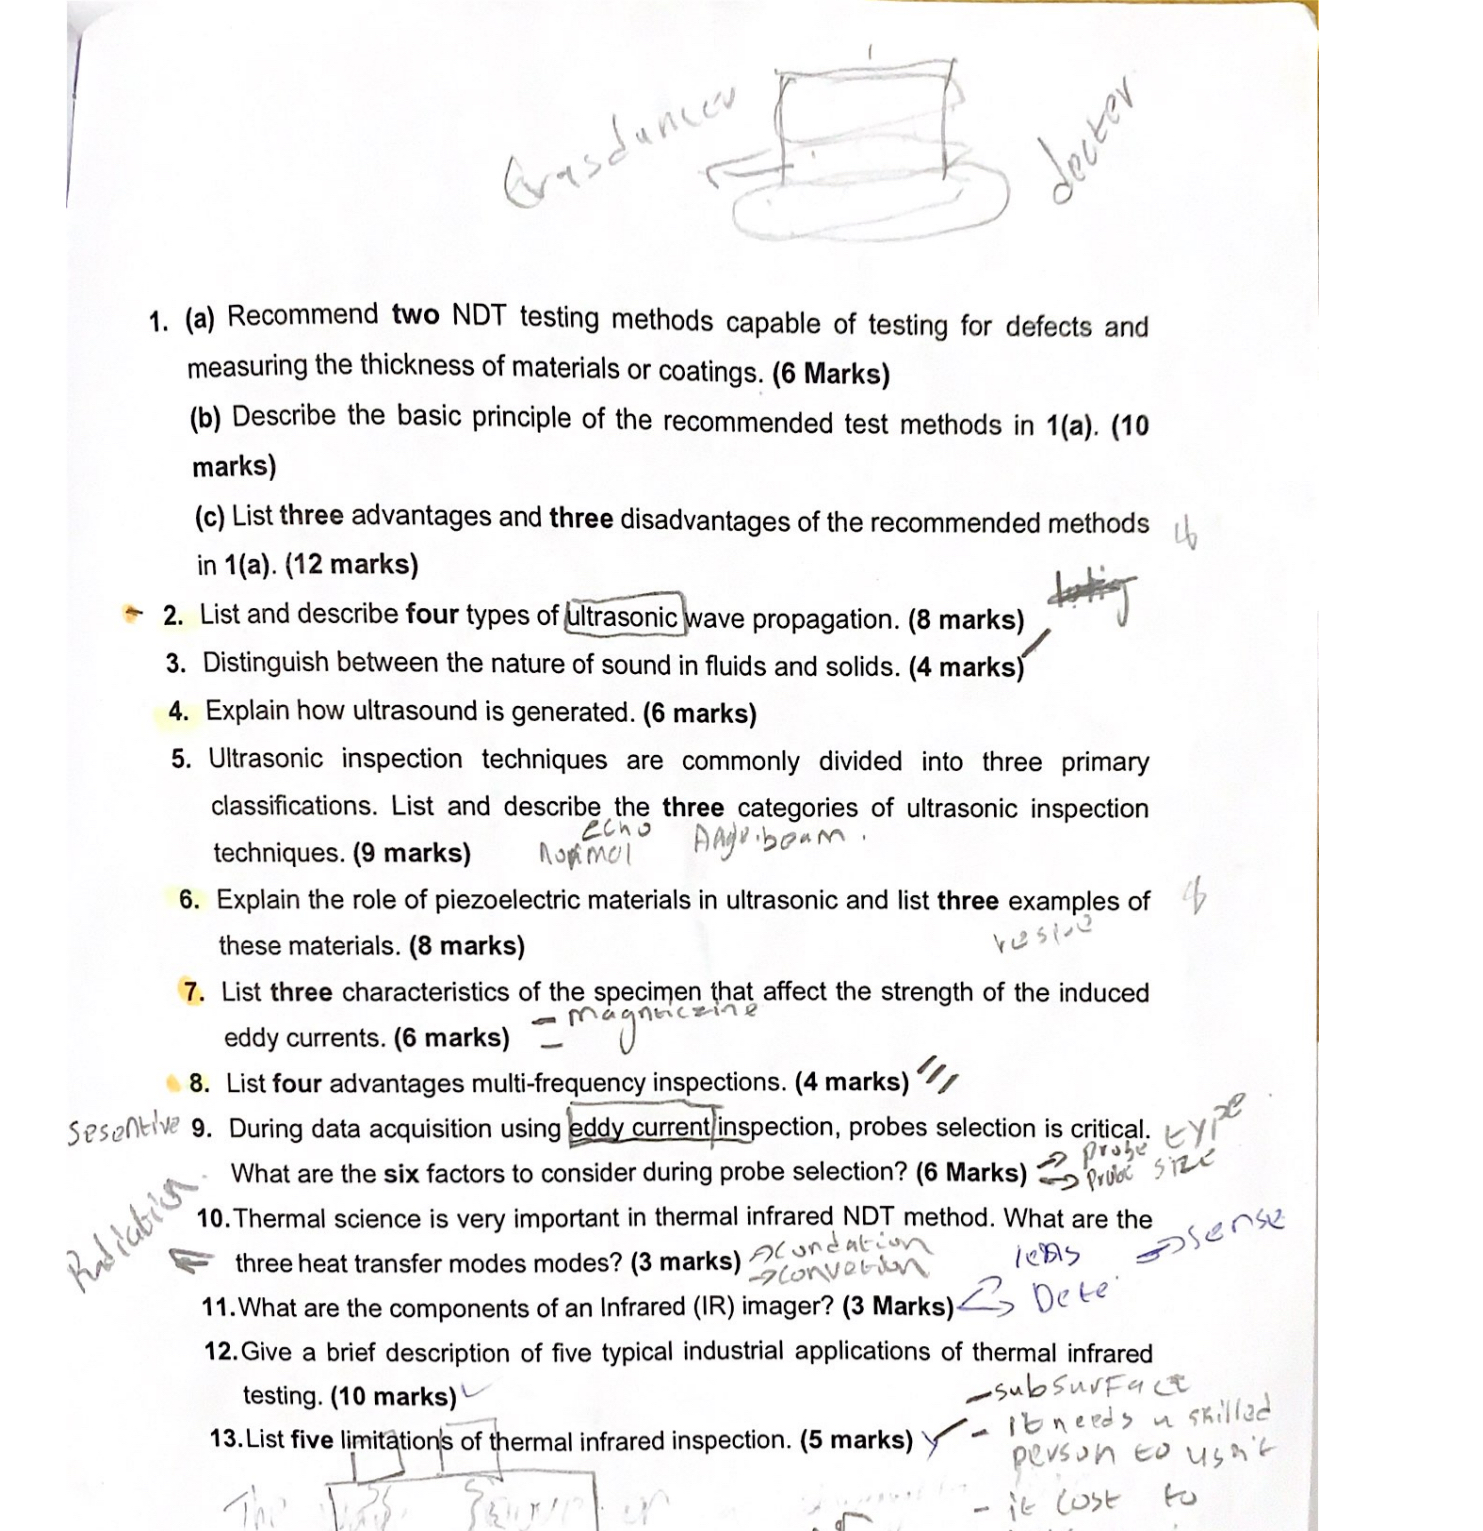 decter
1. (a) Recommend two NDT testing methods capable of testing for defects and
measuring the thickness of materials or coatings. (6 Marks)
(b) Describe the basic principle of the recommended test methods in 1(a). (10
marks)
(c) List three advantages and three disadvantages of the recommended methods
in 1(a). (12 marks)
2. List and describe four types of ultrasonic wave propagation. (8 marks)
3. Distinguish between the nature of sound in fluids and solids. (4 marks)
4. Explain how ultrasound is generated. (6 marks)
5. Ultrasonic inspection techniques are commonly divided into three primary
classifications. List and describe the three categories of ultrasonic inspection
echo
techniques. (9 marks) Normol
6. Explain the role of piezoelectric materials in ultrasonic and list three examples of
these materials. (8 marks)
7. List three characteristics of the specimen that affect the strength of the induced
eddy currents. (6 marks)
8. List four advantages multi-frequency inspections. (4 marks)
Sesentive 9. During data acquisition using eddy current inspection, probes selection is critical.
→ probe type
What are the six factors to consider during probe selection? (6 Marks) → Probe size
Radiation
10. Thermal science is very important in thermal infrared NDT method. What are the
three heat transfer modes modes? (3 marks) → condation
→ convetion
lens → sense
11. What are the components of an Infrared (IR) imager? (3 Marks) Dete
12. Give a brief description of five typical industrial applications of thermal infrared
testing. (10 marks)
- subsurfact
13. List five limitations of thermal infrared inspection. (5 marks) - it needs a skilled
person to us it
- it cost to